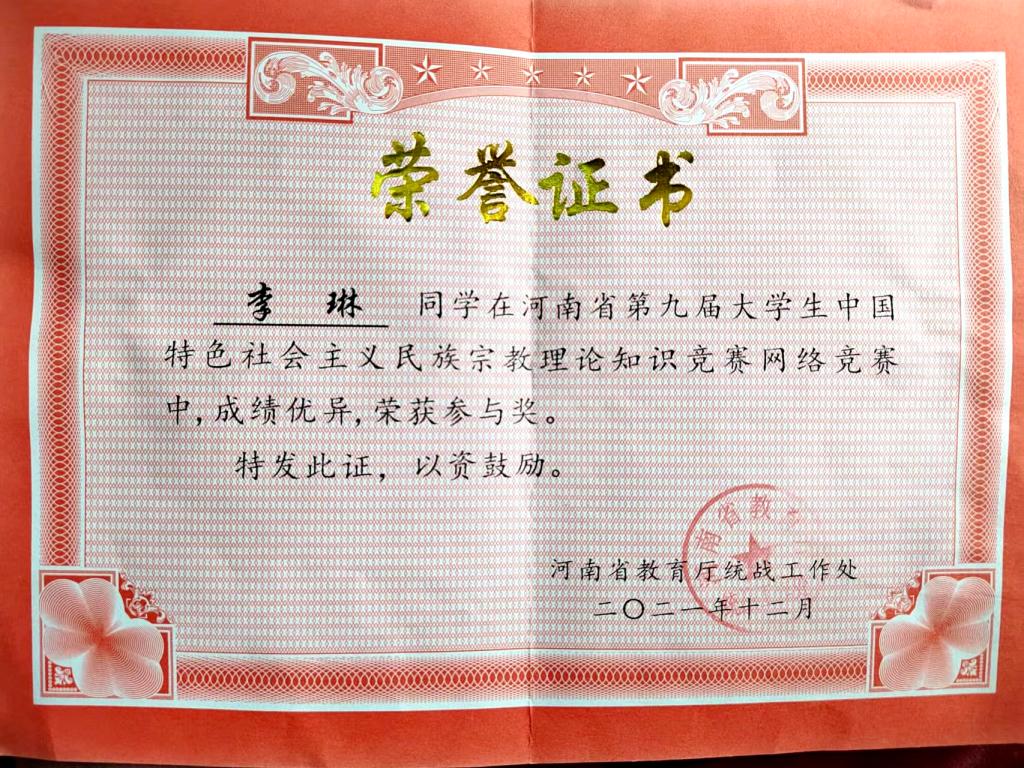 荣誉证书
李琳 同学在河南省第九届大学生中国
特色社会主义民族宗教理论知识竞赛网络竞赛
中,成绩优异,荣获参与奖。
特发此证，以资鼓励。
南省教
河南省教育厅统战工作处
二〇二一年十二月